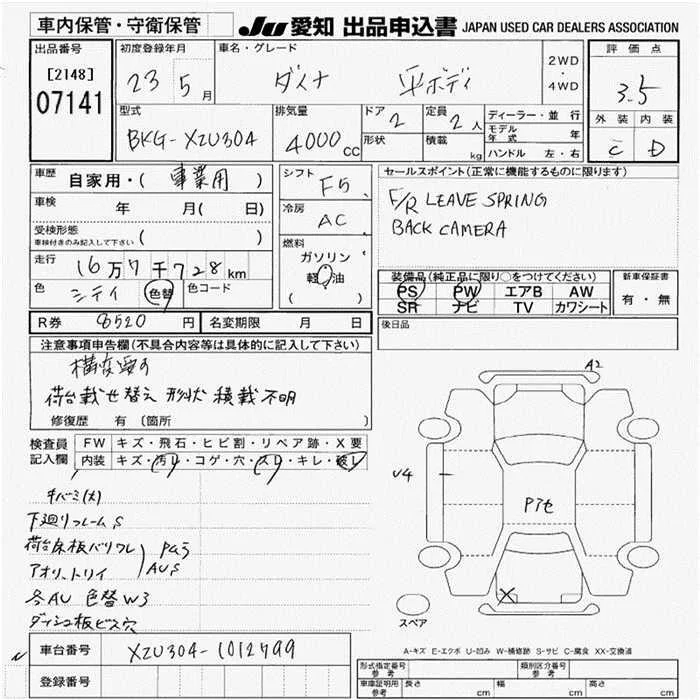 車内保管・守衛保管 JU 愛知 出品申込書 JAPAN USED CAR DEALERS ASSOCIATION
出品番号 初度登録年月 車名・グレード 評価点
[2148] 23 5月 ダイナ 平ボディ 2WD・4WD 3.5
07141
型式 排気量 ドア 2 定員 2人 ディーラー・並行 外装 内装
BKG-XZU304 4000cc 形状 積載 kg モデル年式 年 C D
ハンドル 左・右
車歴 自家用・( 事業用 ) シフト F5 セールスポイント(正常に機能するものに限ります)
車検 年 月( 日) 冷房 AC F/R LEAVE SPRING
受検形態 BACK CAMERA
車検付きのみ記入して下さい ( )
燃料 ガソリン 軽油 ( )
走行 16万7千728km 装備品(純正品に限り○をつけてください) 新車保証書
色 シテイ 色替 色コード PS PW エアB AW 有・無
SR ナビ TV カワシート
R券 8520円 名変期限 月 日 後日品
注意事項申告欄(不具合内容等は具体的に記入して下さい)
構変要す
荷台載せ替え 形状 積載不明
修復歴 有 〔箇所
検査員記入欄 FW キズ・飛石・ヒビ割・リペア跡・X要
内装 キズ・汚れ・コゲ・穴・スレ・キレ・破レ
キバミ(大)
下廻りフレームS
荷台床板バリワレ PG5
アオリ、トリイ AUS
各AU 色替W3
ダッシュ板ビス穴
A2
V4
Pアセ
X
スペア
車台番号 XZU304-1012799
登録番号
A-キズ E-エクボ U-凹み W-補修跡 S-サビ C-腐食 XX-交換済
形式指定番号 参考 類別区分番号 参考
車庫証明用 参考 長さ cm 幅 cm 高さ cm